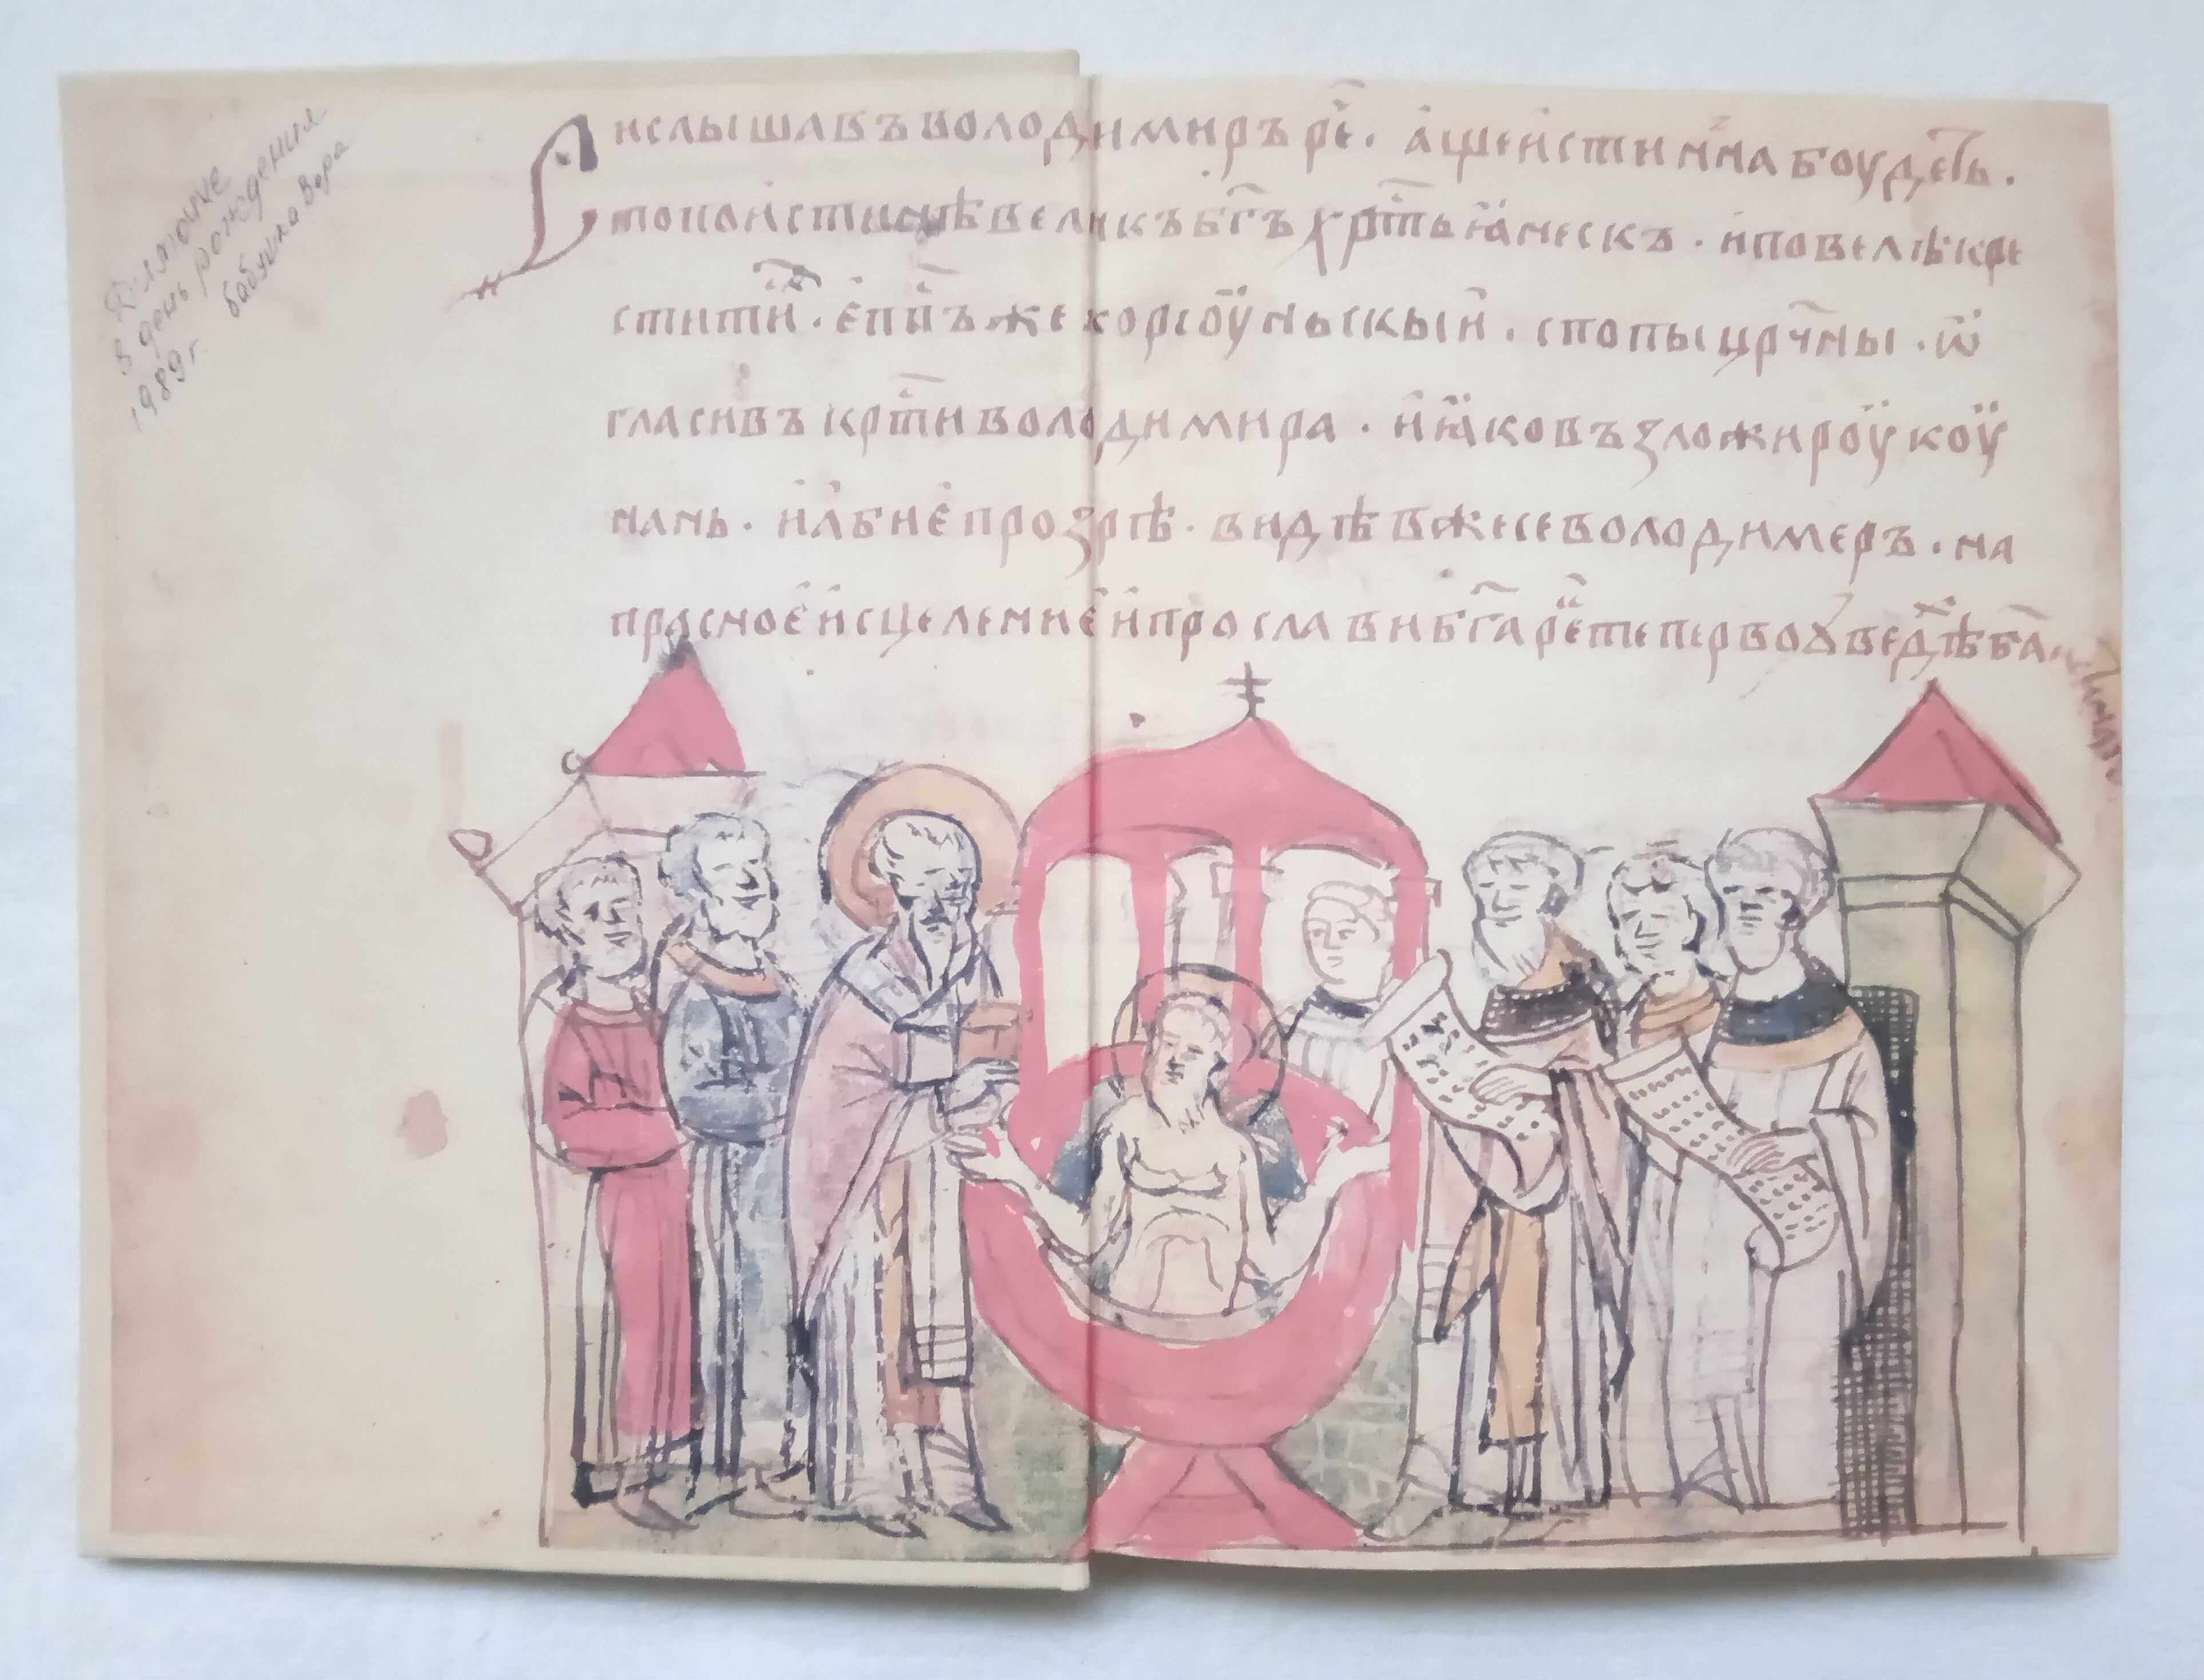 Димочке
в день рождения
1989 г. бабушка Вера
и слышавъ володимиръ рⷱ҇е . а́ще и́стинна боудеть .
то поистинѣ великъ бг҃ъ хрⷭ҇тьꙗнескъ . и повелѣ кре
стити . е́пⷭ҇пъ же корсоуньскыи . с попы црⷭ҇чны . ѿ
гласивъ крⷭ҇ти володимира . и ꙗко възложи роукоу
нань . и а́бие́ прозрѣ . видѣв же се володимеръ . на
прасное́ исцеление́ и прослави бг҃а рⷱ҇е те перво оувѣдѣⷯ ба҃ .